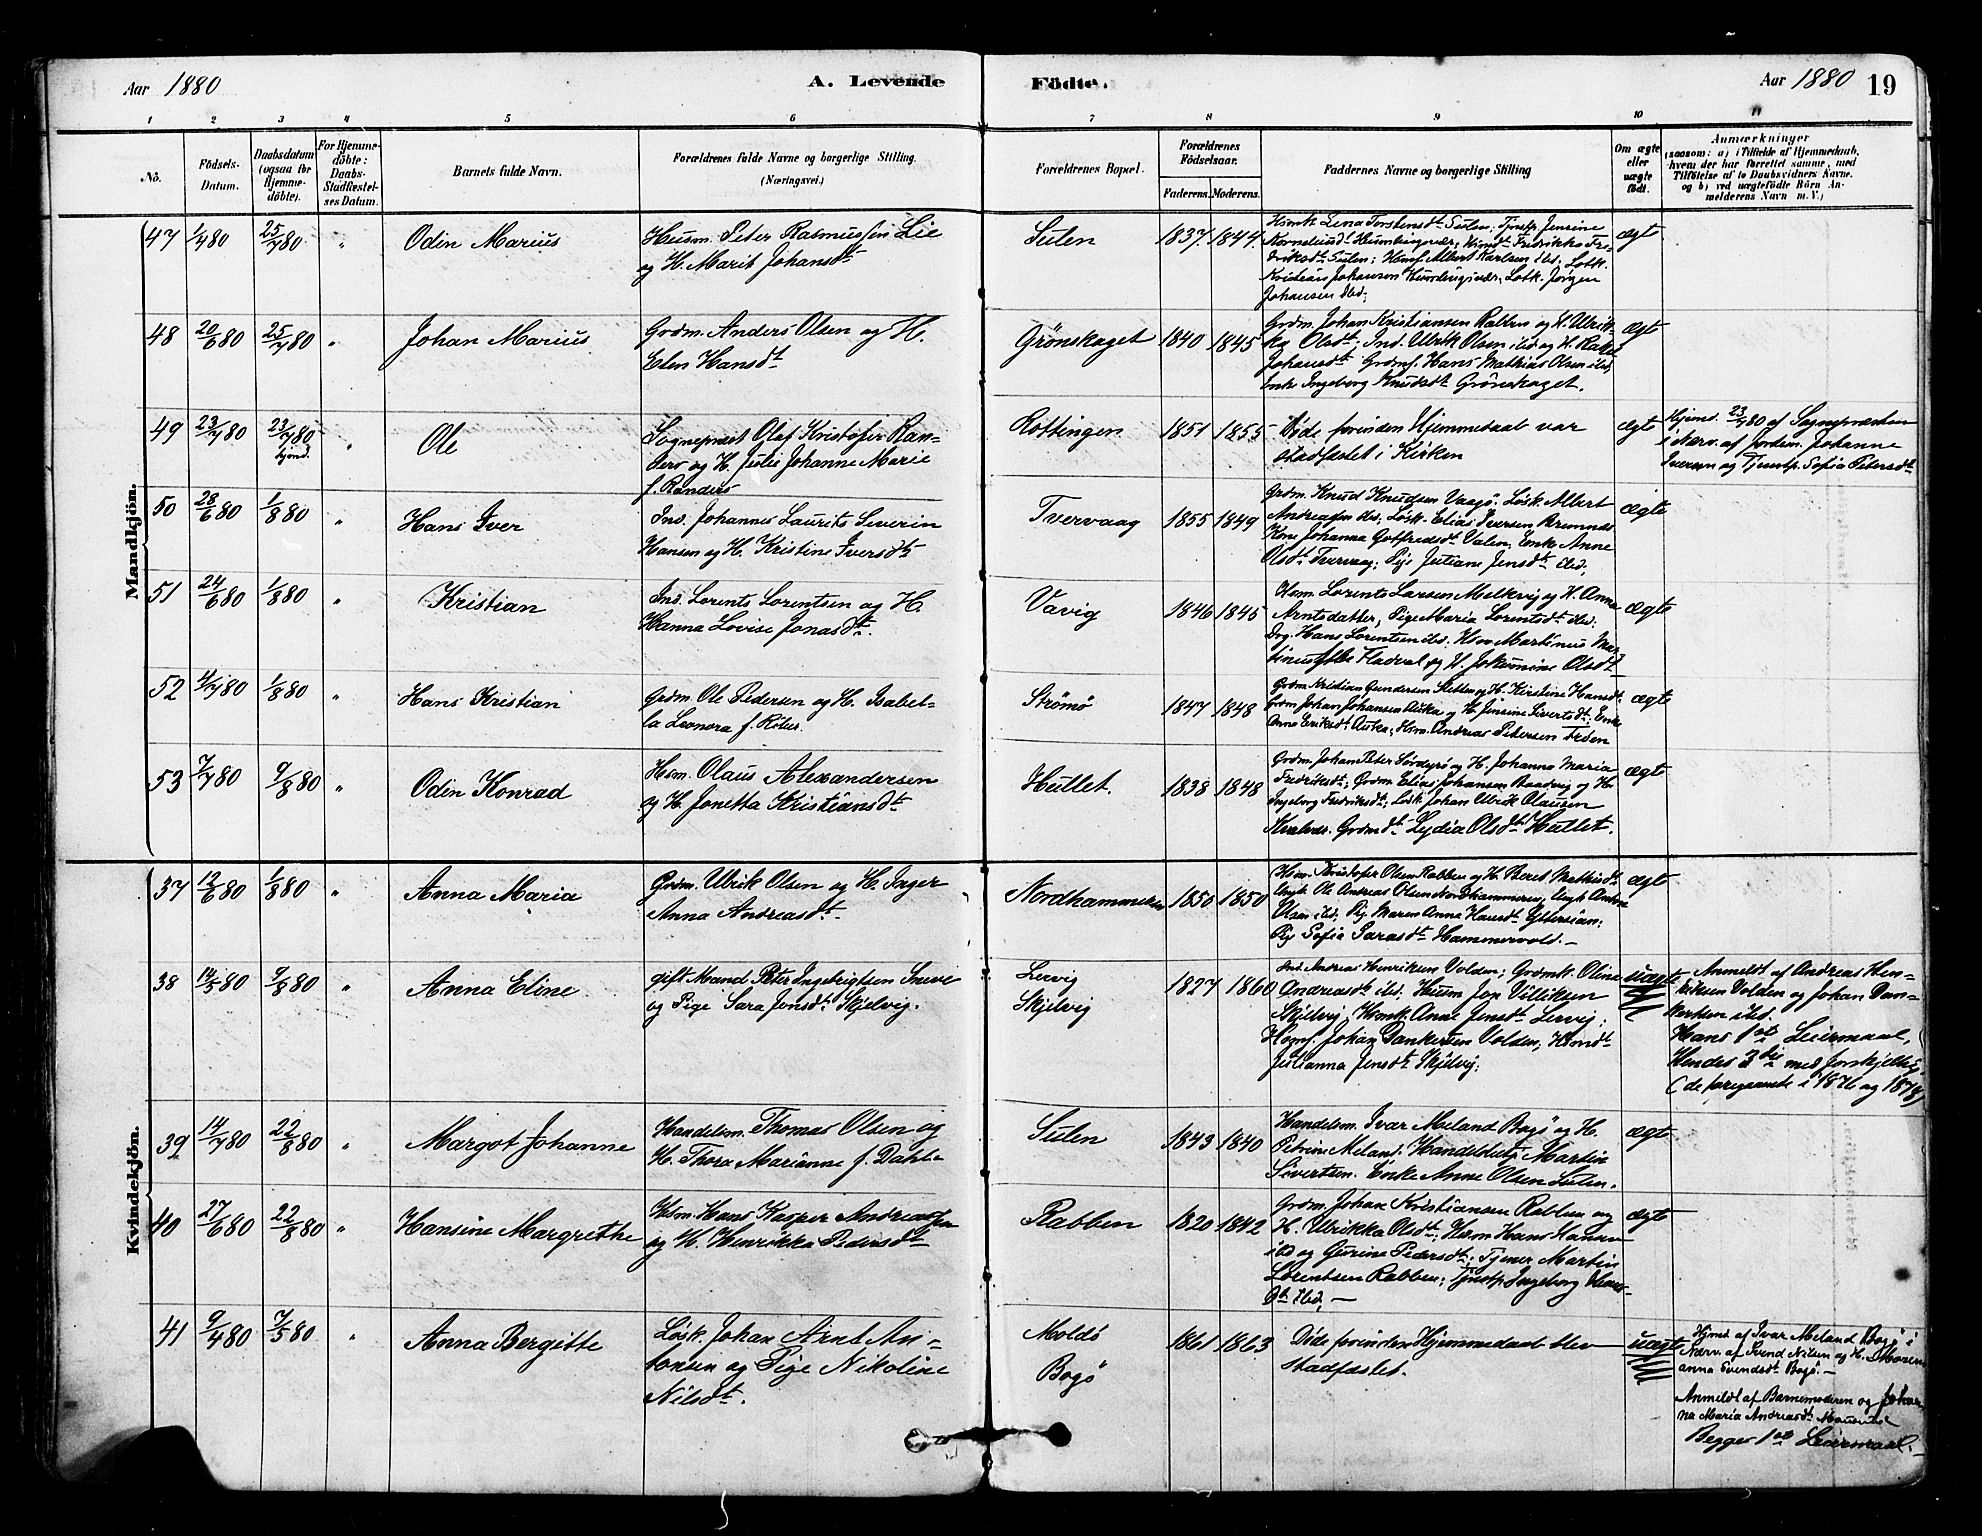 Aar 1880
A. Levende
Födte.
Aar 1880
19
1 2 3 4 5 6 7 8 9 10 11
No.
Födsels-
Datum.
Daabsdatum
(ogsaa for
Hjemme-
döbte).
For Hjemme-
döbte:
Daabs-
Stadfæstel-
ses Datum.
Barnets fulde Navn.
Forældrenes fulde Navne og borgerlige Stilling.
(Næringsvei.)
Forældrenes Bopæl.
Forældrenes
Fødselsaar.
Faderens. Moderens.
Faddernes Navne og borgerlige Stilling
Om ægte
eller
uægte
födt.
Anmærkninger
(saasom: a) i Tilfælde af Hjemmedaab,
hvem der har forrettet samme, med
Tilföielse af to Daabsvidners Navne.
og b) ved uægtefödte Börn An-
melderens Navn m. V.)
Mandkjön.
47 1/4 80 25/7 80 "
Odin Marius
Husm. Peter Rasmussen Lie
og H. Marit Johansdt
Sulen
1837 1844
Hmk Lena Torstensdt Sulen; Tjnstp. Jensine
Korneliusdt Humlingvær; Hsmdt Fredrikke Fre-
driksdt Sulen; Hsmf Albert Karlsen ibd; Losk.
Kristian Johansen Humlingvær; Losk. Jörgen
Johansen Ibd;
ægt
48 20/6 80 25/7 80 "
Johan Marius
Grdm. Anders Olsen og H.
Elen Hansdt
Grönskaget
1840 1845
Grdm. Johan Kristiansen Rabben og H. Ulrik-
ka Olsdt; Ind. Ulrik Olsen ibd og H. Rakel
Johansdt Grdmf. Hans Mathias Olsen ibd,
Enke Ingeborg Knudsdt Grönskaget.
ægt
49 23/7 80 23/7 80 hjmd. "
Ole
Sognepræst Olaf Kristofer Ran-
ders og H. Julie Johanne Marie
f. Randers
Hottingen
1851 1855
Döde forinden Hjemmedaab var
stadfæstet i Kirken
ægt
Hjmd. 23/7 80 af Sognepræsten
i Nærv. af Jordm. Johanne
Iversen og Tjnstp. Sofia Petersdt
50 28/6 80 1/8 80 "
Hans Iver
Ind. Johannes Laurits Severin
Hansen og H. Kristine Iversdt
Tvervaag
1855 1849
Grdm. Knud Knudsen Vaagö. Lösk. Albert
Andreassen ibd; Lösk. Elias Iversen Kremnes
Kone Johanna Gotfredsdt Valen, Enke Anne
Olsdt Tvervaag; Pige Juliane Jensdt ibd,
ægte
51 24/6 80 1/8 80 "
Kristian
Ind. Lorents Lorentsen og H
Hanna Lovise Jonasdt.
Vavig
1846 1845
Hsm. Lorents Larsen Melkvig og H. Anna
Arntsdatter, Pige Maria Lorentsdt ibd.
Drg. Hans Lorentsen ibd. Hsm Martinus Mar-
tinussen Fladval og H. Jokumine Olsdt
ægte
52 4/7 80 1/8 80 "
Hans Kristian
Grdm Ole Pedersen og H. Isabel-
la Leonora f. Röber
Strömö
1847 1848
Grdm. Kristian Gundersen Sletten og H. Kirstine Hansdt.
Grdm Johan Johansen Auka og H. Jensine Sivertsdt; Enke
Anna Eriksdt Auka; Hsm. Andreas Petersen
ægte
53 7/7 80 9/8 80 "
Odin Konrad
Hsm. Olaus Alexandersen
og H. Jonetta Kristiansdt
Hullet.
1838 1848
Grdm. Johan Peter Sördyrö og H. Johanna Maria
Fredriksdt; Grdm. Elias Johansen og H.
Ingeborg Fredriksdt; Lösk. Johan Ulrik Olausen
Grdmdt Lydia Olsdt Hullet.
ægte
Kvindekjön.
37 12/6 80 1/8 80 "
Anna Maria
Grdm. Ulrik Olsen og H. Inger
Anna Andreasdt
Nordhammeren
1850 1850
Hsm. Kristofer Olsen Rabben og H. Beret Mathisdt
Ungk. Ole Andreas Olsen Nordhammeren, Ungk. Anton
Olsen ibd; Pg. Maren Anna Hansdt Yttersian;
Pg Sofia Larsdt Hammervold.
ægt
38 14/5 80 9/8 80 "
Anna Eline
gift Mand Peter Ingebrigtsen
og Pige Sara Jonsdt Skjelvig.
Lervig
Skjelvig
1827 1860
Ind. Andreas Henriksen Volden; Grdmk. Oline
Andreasdt ibd. Husm Jon Villiksen
Skjelvig, Hsmk. Anne Jensdt Lervig;
Hsmf. Johan Dankersen Volden, Hsmdt
Julianna Jensdt Skjelvig;
uægte
Anmeldt af Andreas Hen-
riksen Volden og Johan Dan-
kertsen ibd.
Hans 1st Leiermaal,
Hendes 3die med forskjellig
(de foregaaende i 1876 og 1878)
39 14/7 80 22/8 80 "
Margot Johanne
Handelsm. Thomas Olsen og
H. Thora Marianne f. Dahl
Sulen
1843 1840
Handelsm. Ivar Meland Bogö og H.
Petrine Meland; Martin
Sivertsen. Enke Anne Olsen Sulen.
ægte
40 27/6 80 22/8 80 "
Hansine Margrethe
Hsm. Hans Kasper Andreassen
og H. Henrikka Pedersdt
Rabben
1820 1842
Grdm. Johan Kristiansen Rabben og
H. Ulrikka Olsdt; Hsm Hans Hansen
ibd og Gurine Pedersdt; Tjener Martin
Lorentsen Rabben; Tjnstp. Ingeborg
dt ibd;
ægte
41 9/4 80 7/5 80 "
Anna Bergitte
Lösk. Johan Arnt An-
tonsen og Pige Nikoline
Nilsdt.
Moldö
Bogö
1861 1863
Döde forinden Hjemmedaab blev
stadfæstet.
uægte
Hjmd. af Ivar Meland Bogö i
Nærv. af Svend Nilsen og H. Maren
anna Svendsdt Bogö.
Anmeldt af Barnemoderen og Johan-
na Maria Andreasdt Mausund
Begges 1st Leiermaal.